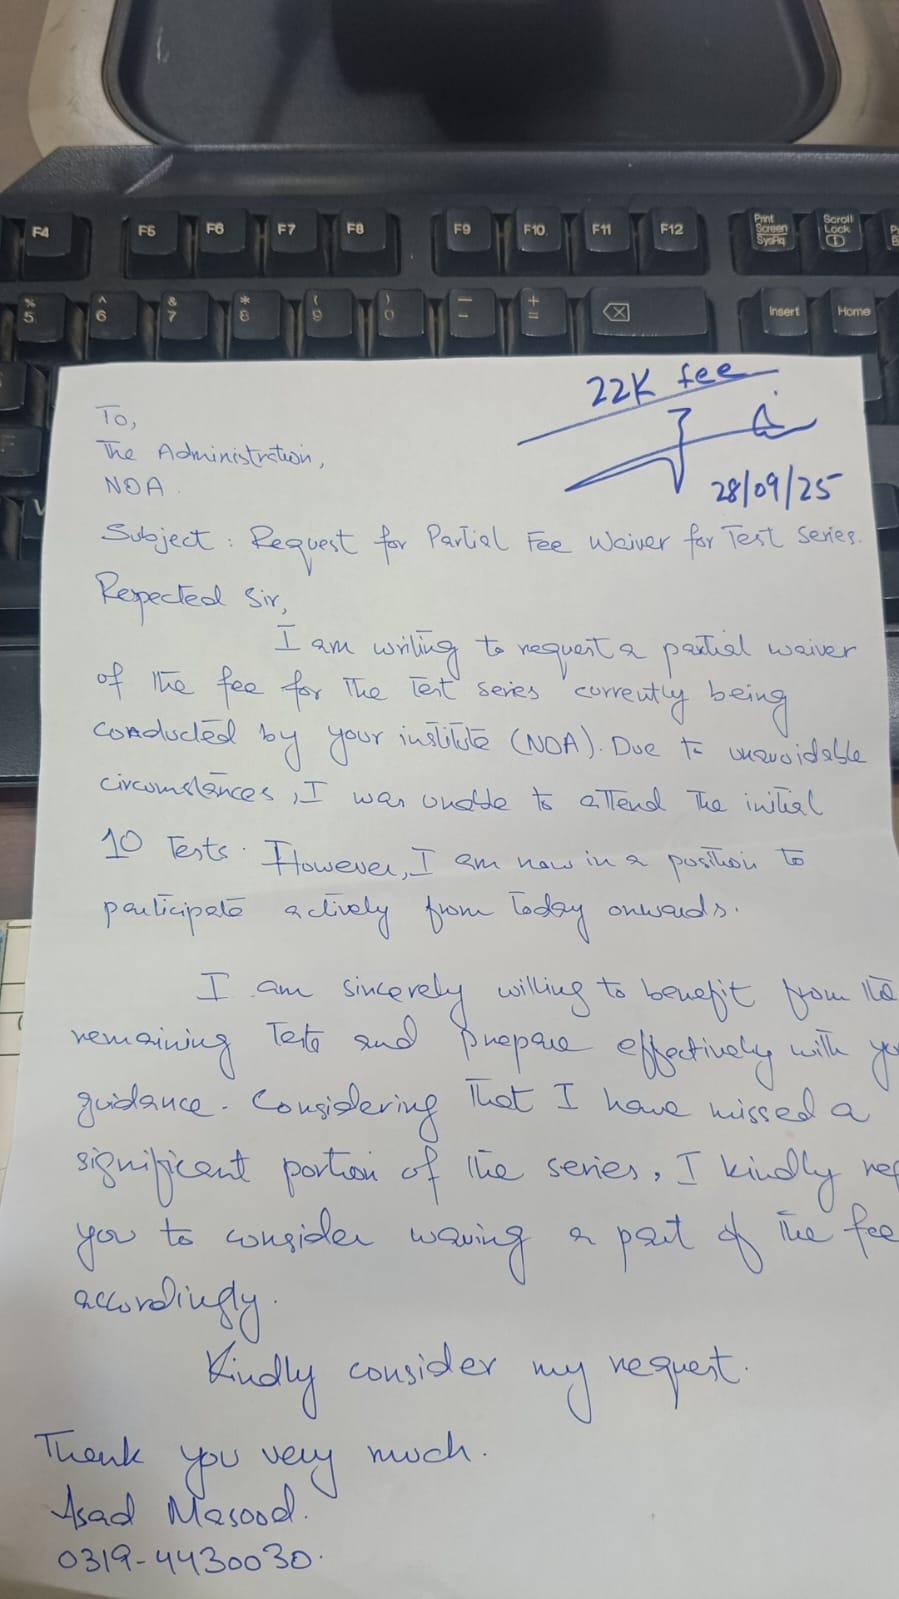 F4 F5 F6 F7 F8 F9 F10 F11 F12 Print Screen SysRq Scroll Lock
% 5 ^ 6 & 7 * 8 ( 9 ) 0 — - + = Insert Home
22K fee
28/09/25
To,
The Administration,
NOA.
Subject: Request for Partial Fee Waiver for Test Series.
Respected Sir,
I am writing to request a partial waiver
of the fee for the Test series currently being
conducted by your institute (NOA). Due to unavoidable
circumstances, I was unable to attend the initial
10 Tests. However, I am now in a position to
participate actively from today onwards.
I am sincerely willing to benefit from the
remaining Tests and prepare effectively with yo
guidance. Considering that I have missed a
significant portion of the series, I kindly req
you to consider waving a part of the fee
accordingly.
Kindly consider my request.
Thank you very much.
Asad Masood.
0319-4430030.